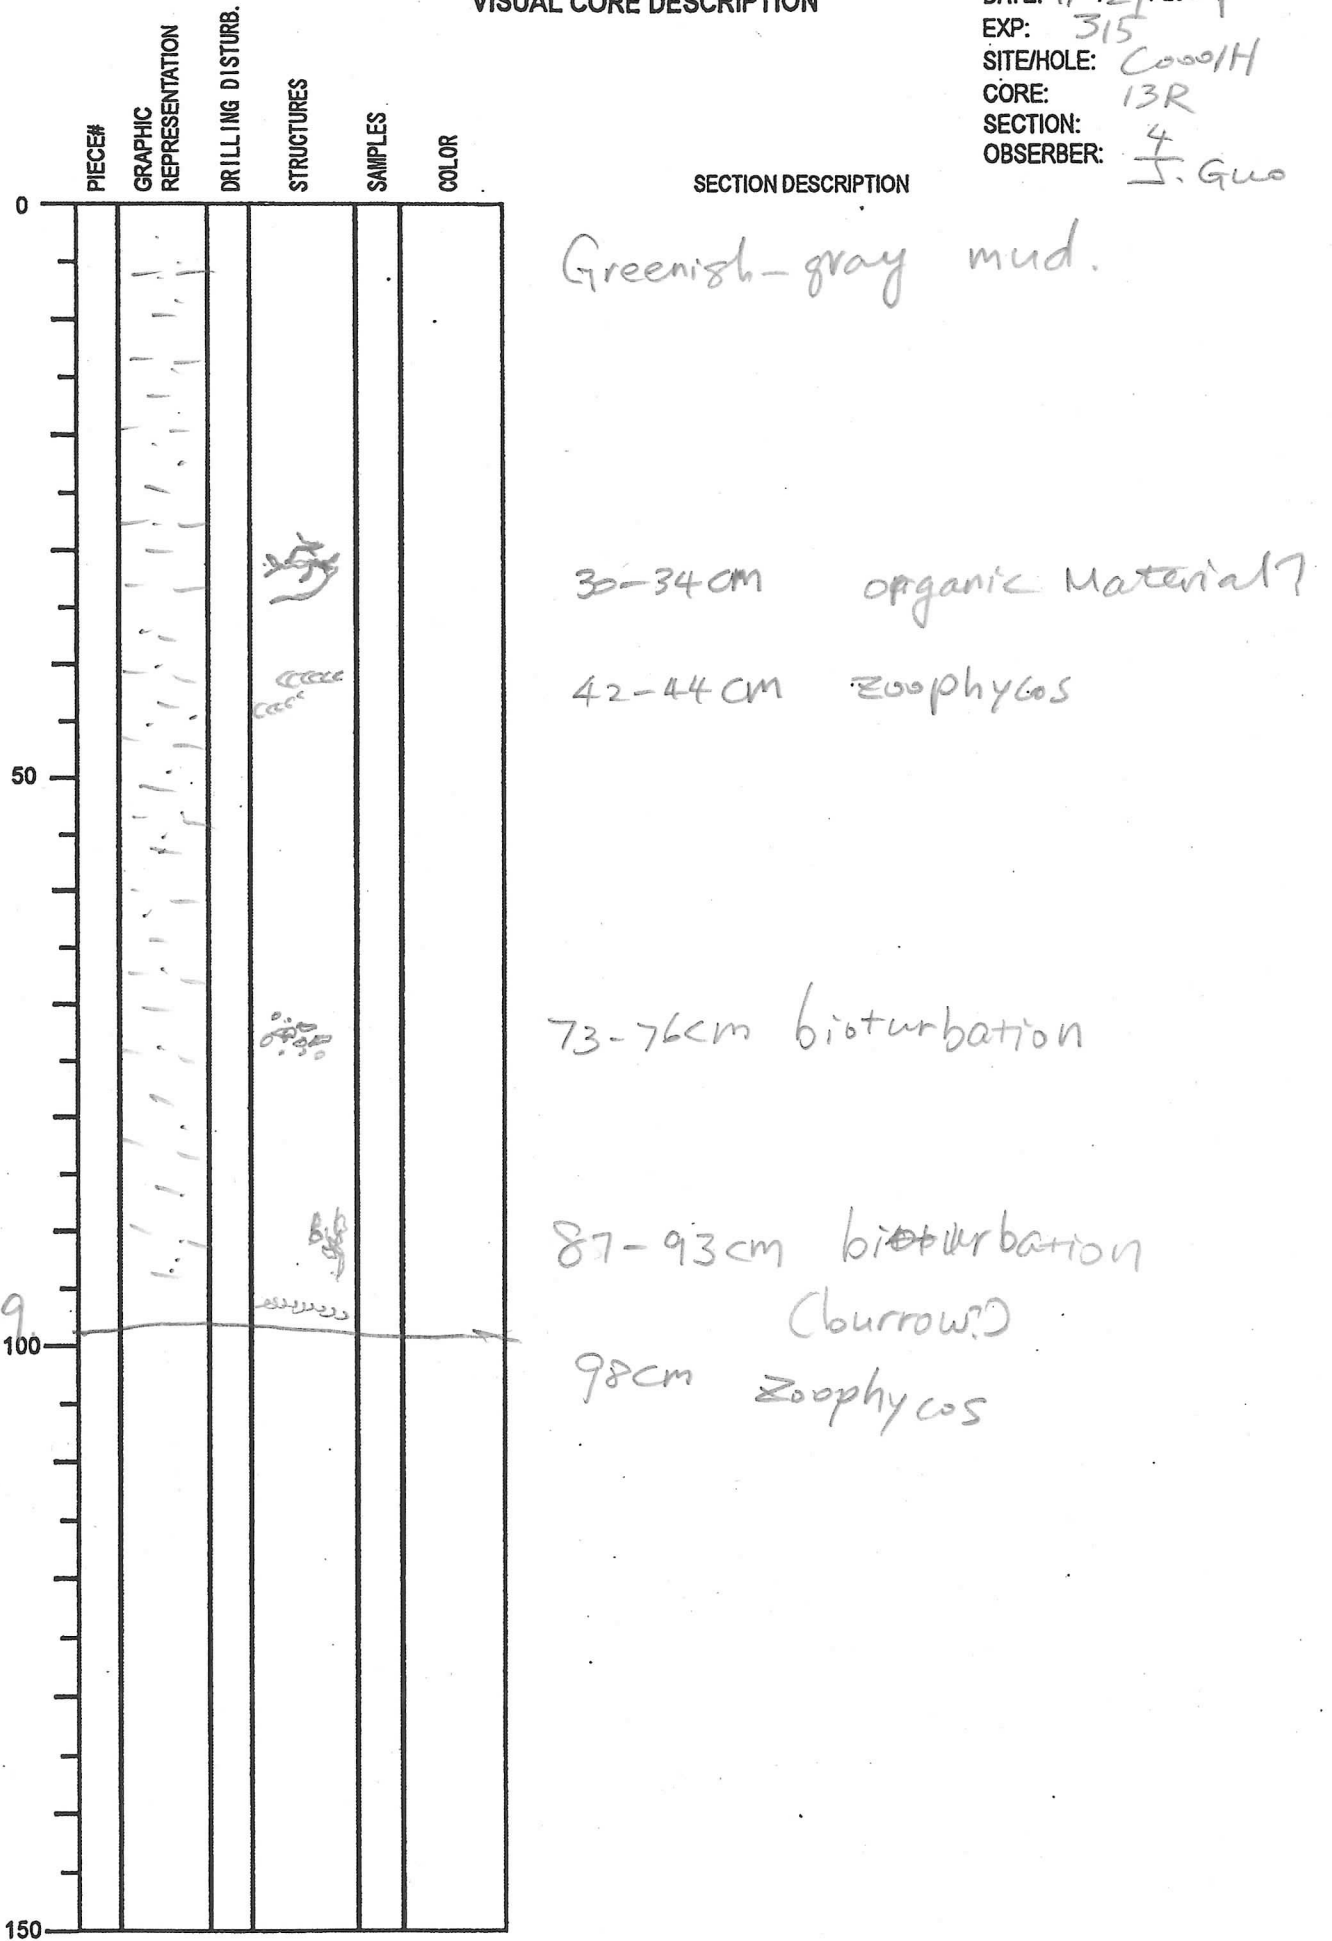 VISUAL CORE DESCRIPTION
EXP: 315
SITE/HOLE: C0001H
CORE: 13R
SECTION: 4
OBSERBER: J. Guo
PIECE#
GRAPHIC
REPRESENTATION
DRILLING DISTURB.
STRUCTURES
SAMPLES
COLOR
SECTION DESCRIPTION
0
Greenish-gray mud.
30-34cm organic Material?
42-44cm zoophycos
50
73-76cm bioturbation
87-93cm bioturbation
(burrow?)
100
98cm Zoophycos
150